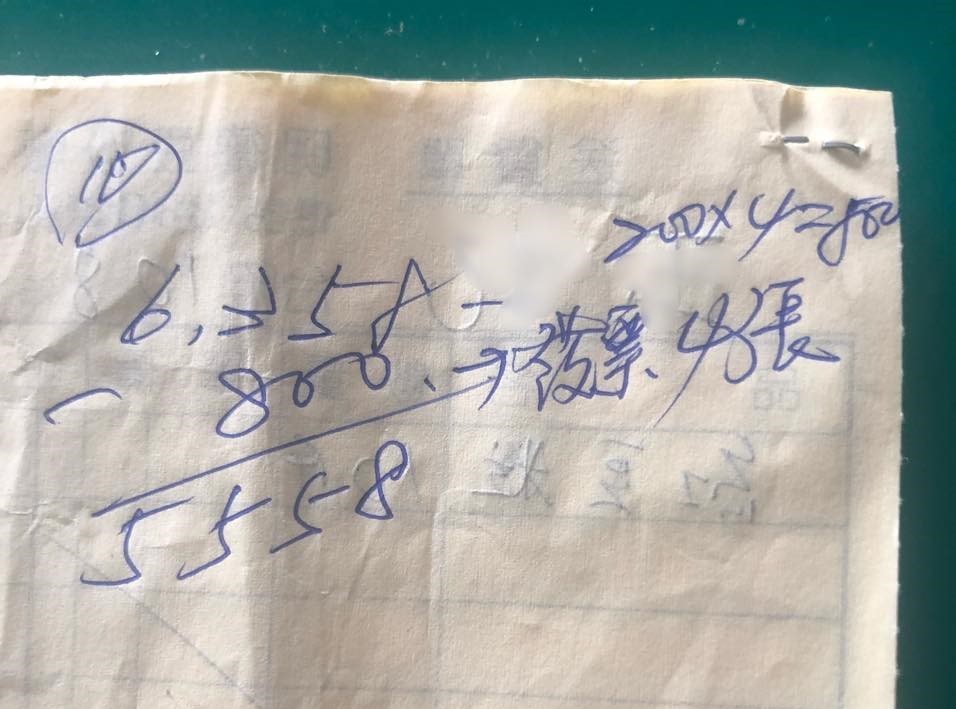 200×4=800
6,358-
- 800.→發票、4張
5558